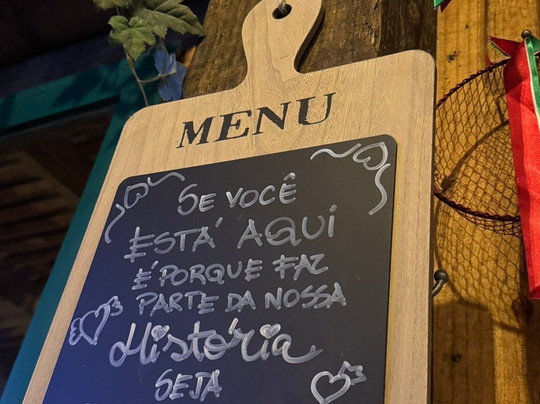 MENU
SE VOCÊ
ESTÁ AQUI
É PORQUE FAZ
PARTE DA NOSSA
História
SEJA